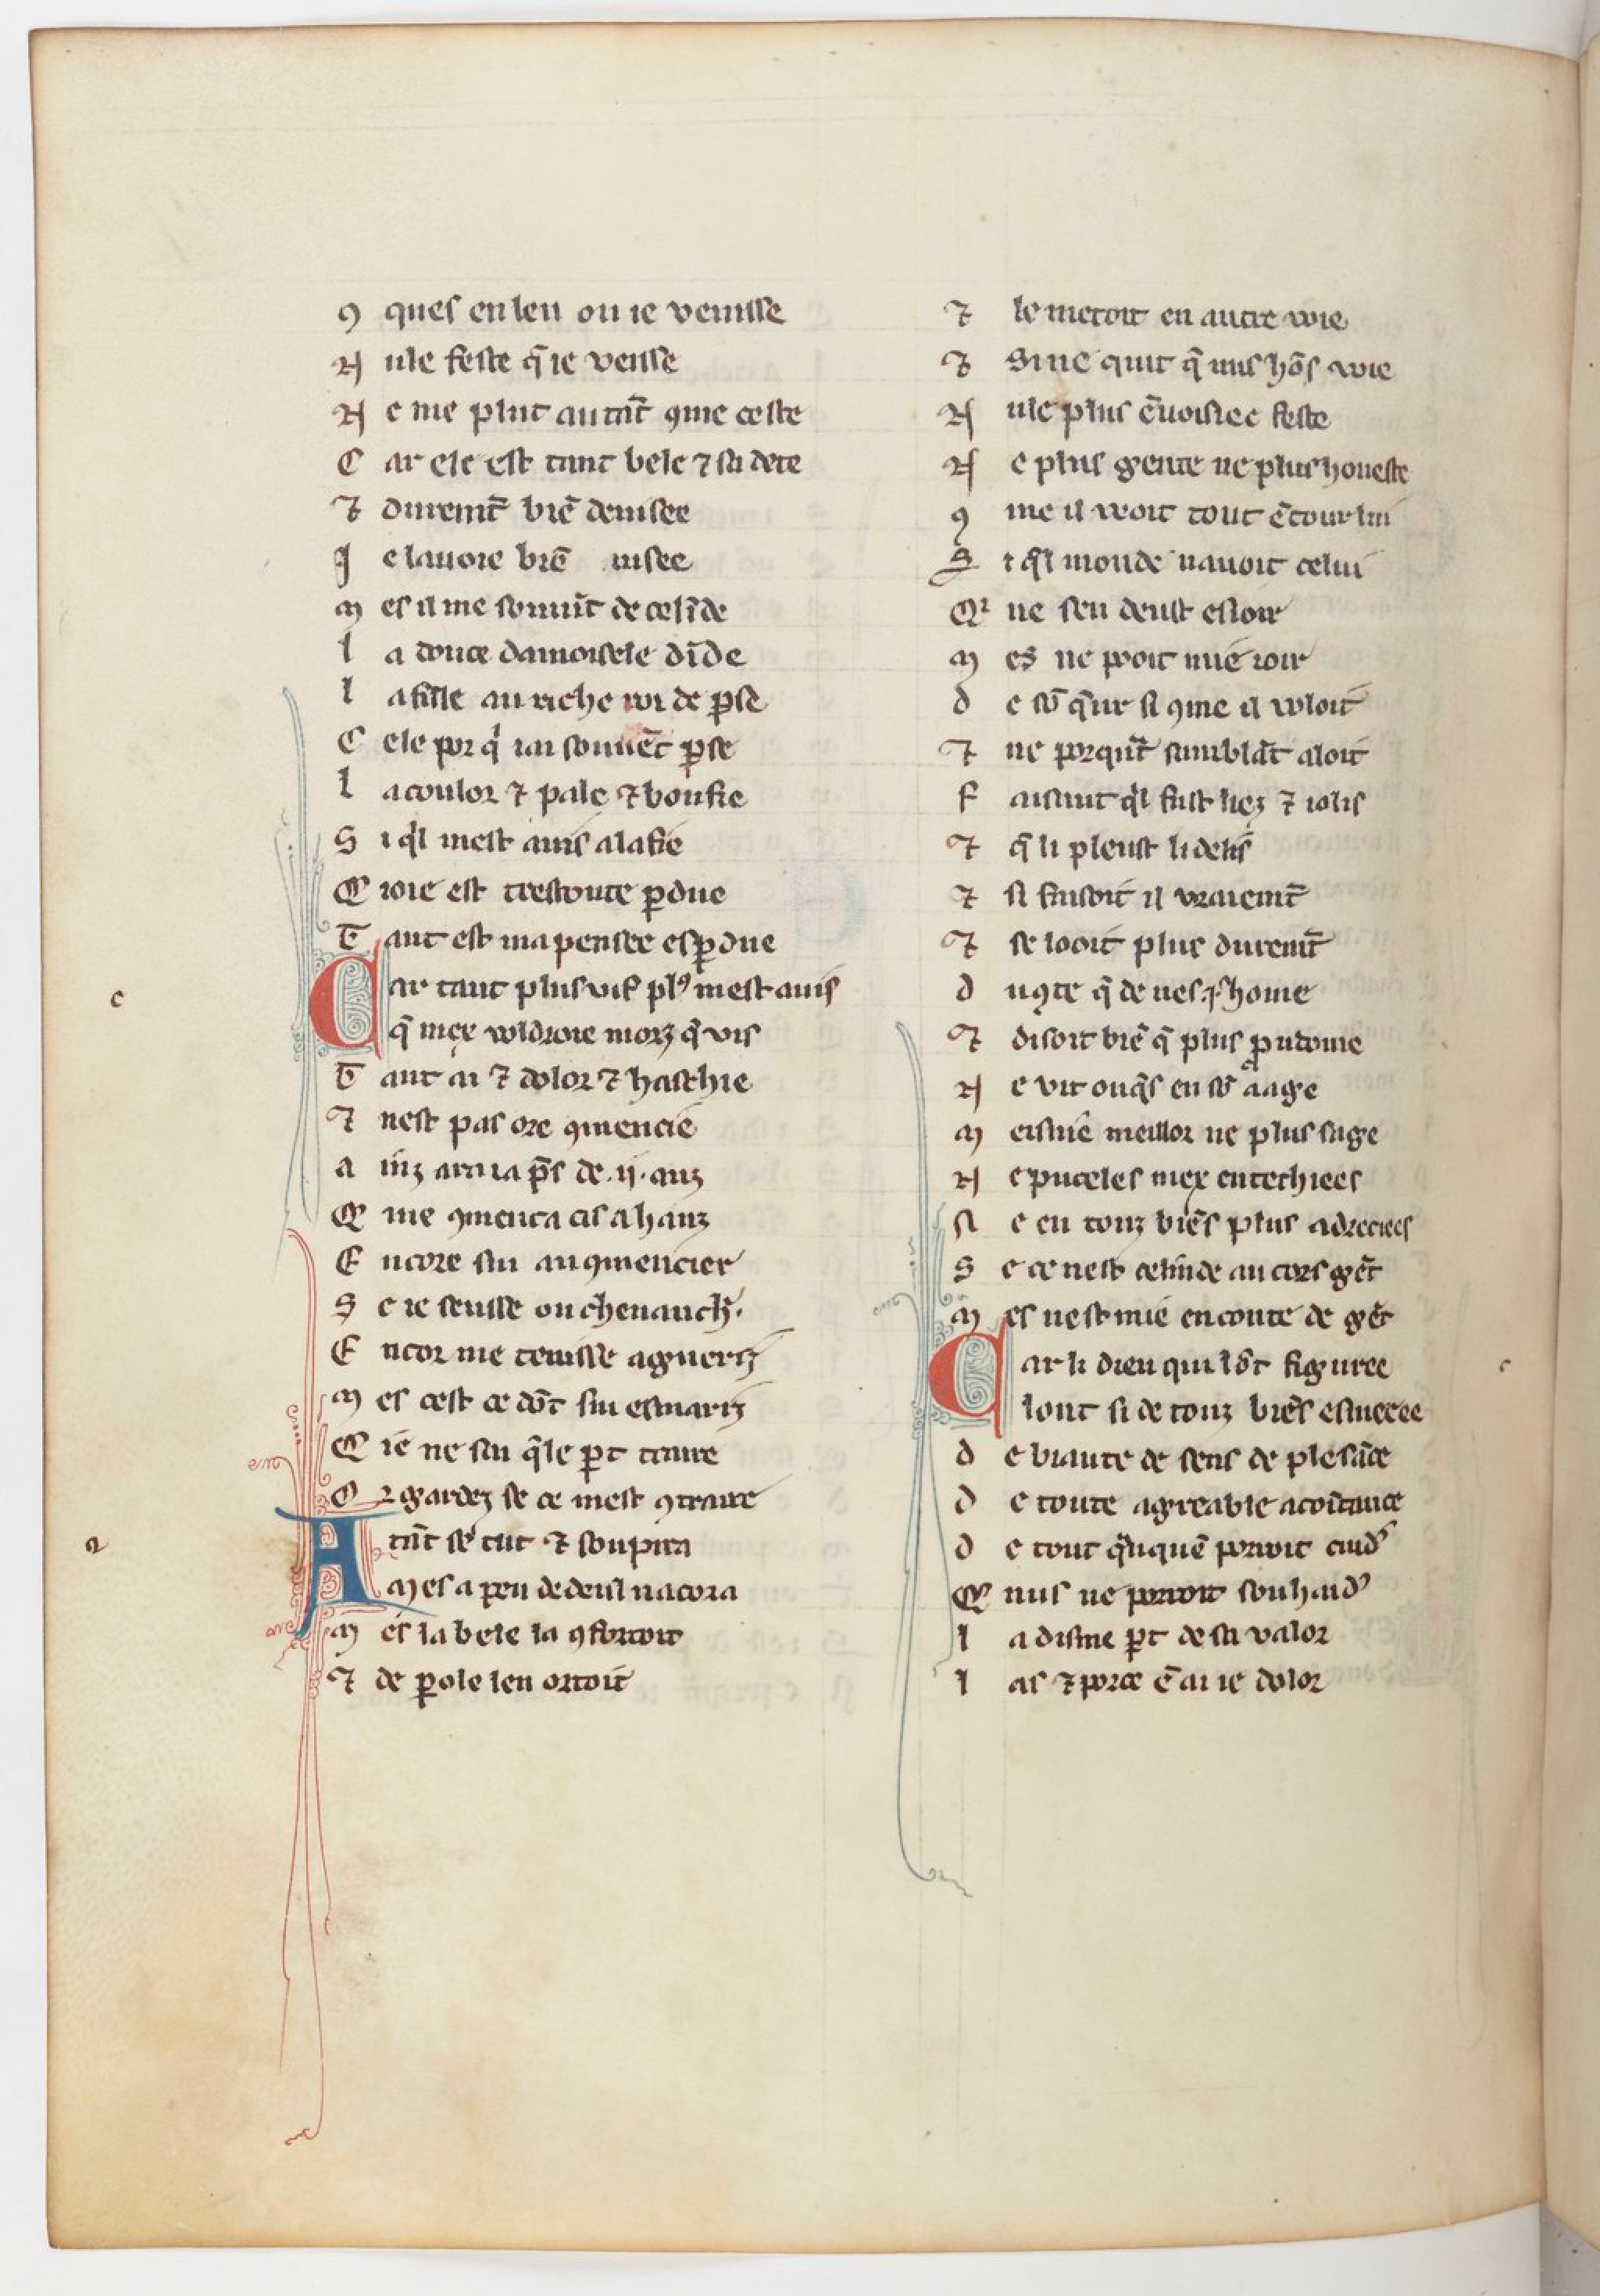 ꝯ ques en leu ou ie venisse
N ule feste q̃ ie veisse
N e me plut autãt ꝯme ceste
C ar ele est tant bele ⁊ sa dete
⁊ duremt̃ biẽ deuisee
J e lauoie biẽ uisee
M es il me souuiẽt de celĩde
l a douce damoisele dĩde
l a fille au riche roi de ꝑse
C ele por q̇ iai souuẽt ꝑse
l a coulor ⁊ pale ⁊ boufie
S i qͥl mest auis a la fie
Q̃ ioie est trestoute ꝑdue
T ant est ma pensee esꝑdue
Car tant plus vif plꝰ mest auis
q̃ mex voldroie morz q̃ vis
T ant ai ⁊ dolor ⁊ haschie
⁊ nest pas ore ꝯmencie
a inz aura ia p̃s de .ij. anz
Q̃ me ꝯmenca cis ahanz
E ncore sui au ꝯmencier
S e ie seusse ou cheuauch̃.
E ncor me tenisse a gueriz
M es cest ce dõt sui esmariz
Q̃ ie ne sai q̃le ꝑt traire
O r gardez se ce mest ꝯtraire
Atãt se tut ⁊ soupira
Mes a peu de deul nacora
M es la bele la ꝯfortoit
⁊ de ꝑole len ortoit
⁊ le metoit en autre voie
⁊ Si ne quit q̃ nus hõs voie
N ule plus ẽuoisiee feste
N e plus gente ne plus honeste
ꝯ me il veoit tout ẽtour lui
S i qͥl monde nauoit celui
Qͥ ne sen deust esioir
M es ne pooit mie ioir
d e sõ q̃ur si ꝯme il voloit
⁊ ne porquãt samblãt aloit
F aisant qͥl fust liez ⁊ iolis
⁊ q̃ li pleust li delis
⁊ si faisoit il vraiemt̃
⁊ se looit plus duremt̃
d uꝯte q̃ de nes .j. home
⁊ disoit biẽ q̃ plus p̱udome
N e vit onq̃s en sõ aage
M eisnie meillor ne plus sage
N e puceles mex entechiees
N e en touz biẽs plus adreciees
S e ce nest celinde au cors gẽt
M es nest mie en conte de gẽt
Car li dieu qui lõt figuree
lont si de touz biẽs esmeree
d e biaute de sens de plesãce
d e toute agreable acoĩtance
d e tout q̃nquẽ pooroit cuid᾽
Q̃ nus ne porroit souhaid᾽
l a disme ꝑt de sa valor
l as ⁊ por ce ẽ ai ie dolor